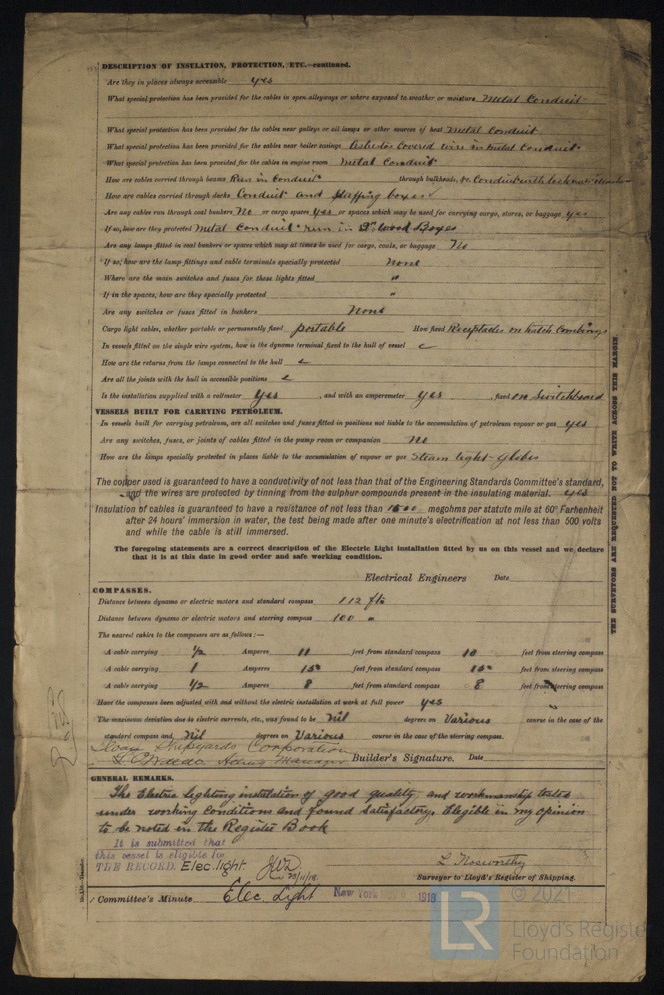 DESCRIPTION OF INSULATION, PROTECTION, ETC.—continued.
Are they in places always accessible yes
What special protection has been provided for the cables in open alleyways or where exposed to weather or moisture Metal Conduit
What special protection has been provided for the cables near galleys or oil lamps or other sources of heat Metal Conduit
What special protection has been provided for the cables near boiler casings Asbestos Covered wire in metal Conduit
What special protection has been provided for the cables in engine room Metal Conduit
How are cables carried through beams Run in Conduit through bulkheads, &c. Conduit with locknuts
How are cables carried through decks Conduit and stuffing boxes
Are any cables run through coal bunkers No or cargo spaces yes or spaces which may be used for carrying cargo, stores, or baggage yes
If so, how are they protected Metal Conduit run in wood Boxes
Are any lamps fitted in coal bunkers or spaces which may at times be used for cargo, coals, or baggage No
If so, how are the lamp fittings and cable terminals specially protected None
Where are the main switches and fuses for these lights fitted "
If in the spaces, how are they specially protected "
Are any switches or fuses fitted in bunkers None
Cargo light cables, whether portable or permanently fixed portable How fixed Receptacles on hatch Combings
In vessels fitted on the single wire system, how is the dynamo terminal fixed to the hull of vessel
How are the returns from the lamps connected to the hull
Are all the joints with the hull in accessible positions
Is the installation supplied with a voltmeter yes , and with an amperemeter yes , fixed on Switchboard
VESSELS BUILT FOR CARRYING PETROLEUM.
In vessels built for carrying petroleum, are all switches and fuses fitted in positions not liable to the accumulation of petroleum vapour or gas yes
Are any switches, fuses, or joints of cables fitted in the pump room or companion No
How are the lamps specially protected in places liable to the accumulation of vapour or gas Steam tight Globes
The copper used is guaranteed to have a conductivity of not less than that of the Engineering Standards Committee's standard,
and the wires are protected by tinning from the sulphur compounds present in the insulating material. yes
Insulation of cables is guaranteed to have a resistance of not less than 1500 megohms per statute mile at 60° Farhenheit
after 24 hours' immersion in water, the test being made after one minute's electrification at not less than 500 volts
and while the cable is still immersed.
The foregoing statements are a correct description of the Electric Light installation fitted by us on this vessel and we declare
that it is at this date in good order and safe working condition.
Electrical Engineers Date
COMPASSES.
Distance between dynamo or electric motors and standard compass 112 fts
Distance between dynamo or electric motors and steering compass 100 "
The nearest cables to the compasses are as follows:—
A cable carrying 1/2 Amperes 11 feet from standard compass 10 feet from steering compass
A cable carrying 1 Amperes 15 feet from standard compass 15 feet from steering compass
A cable carrying 1/2 Amperes 8 feet from standard compass 8 feet from steering compass
Have the compasses been adjusted with and without the electric installation at work at full power yes
The maximum deviation due to electric currents, etc., was found to be Nil degrees on Various course in the case of the
standard compass and Nil degrees on Various course in the case of the steering compass.
Shipyards Corporation
Manager Builder's Signature. Date
GENERAL REMARKS.
The Electric lighting instalation of good quality and workmanship tested
under working conditions and found satisfactory. Elegible in my opinion
to be noted in the Register Book
It is submitted that
this vessel is eligible for
THE RECORD. Elec. light. 29/11/18
Surveyor to Lloyd's Register of Shipping.
Committee's Minute Elec. Light New York 1918
THE SURVEYORS ARE REQUESTED NOT TO WRITE ACROSS THIS MARGIN.
LR
© 2021
Lloyd's Register
Foundation